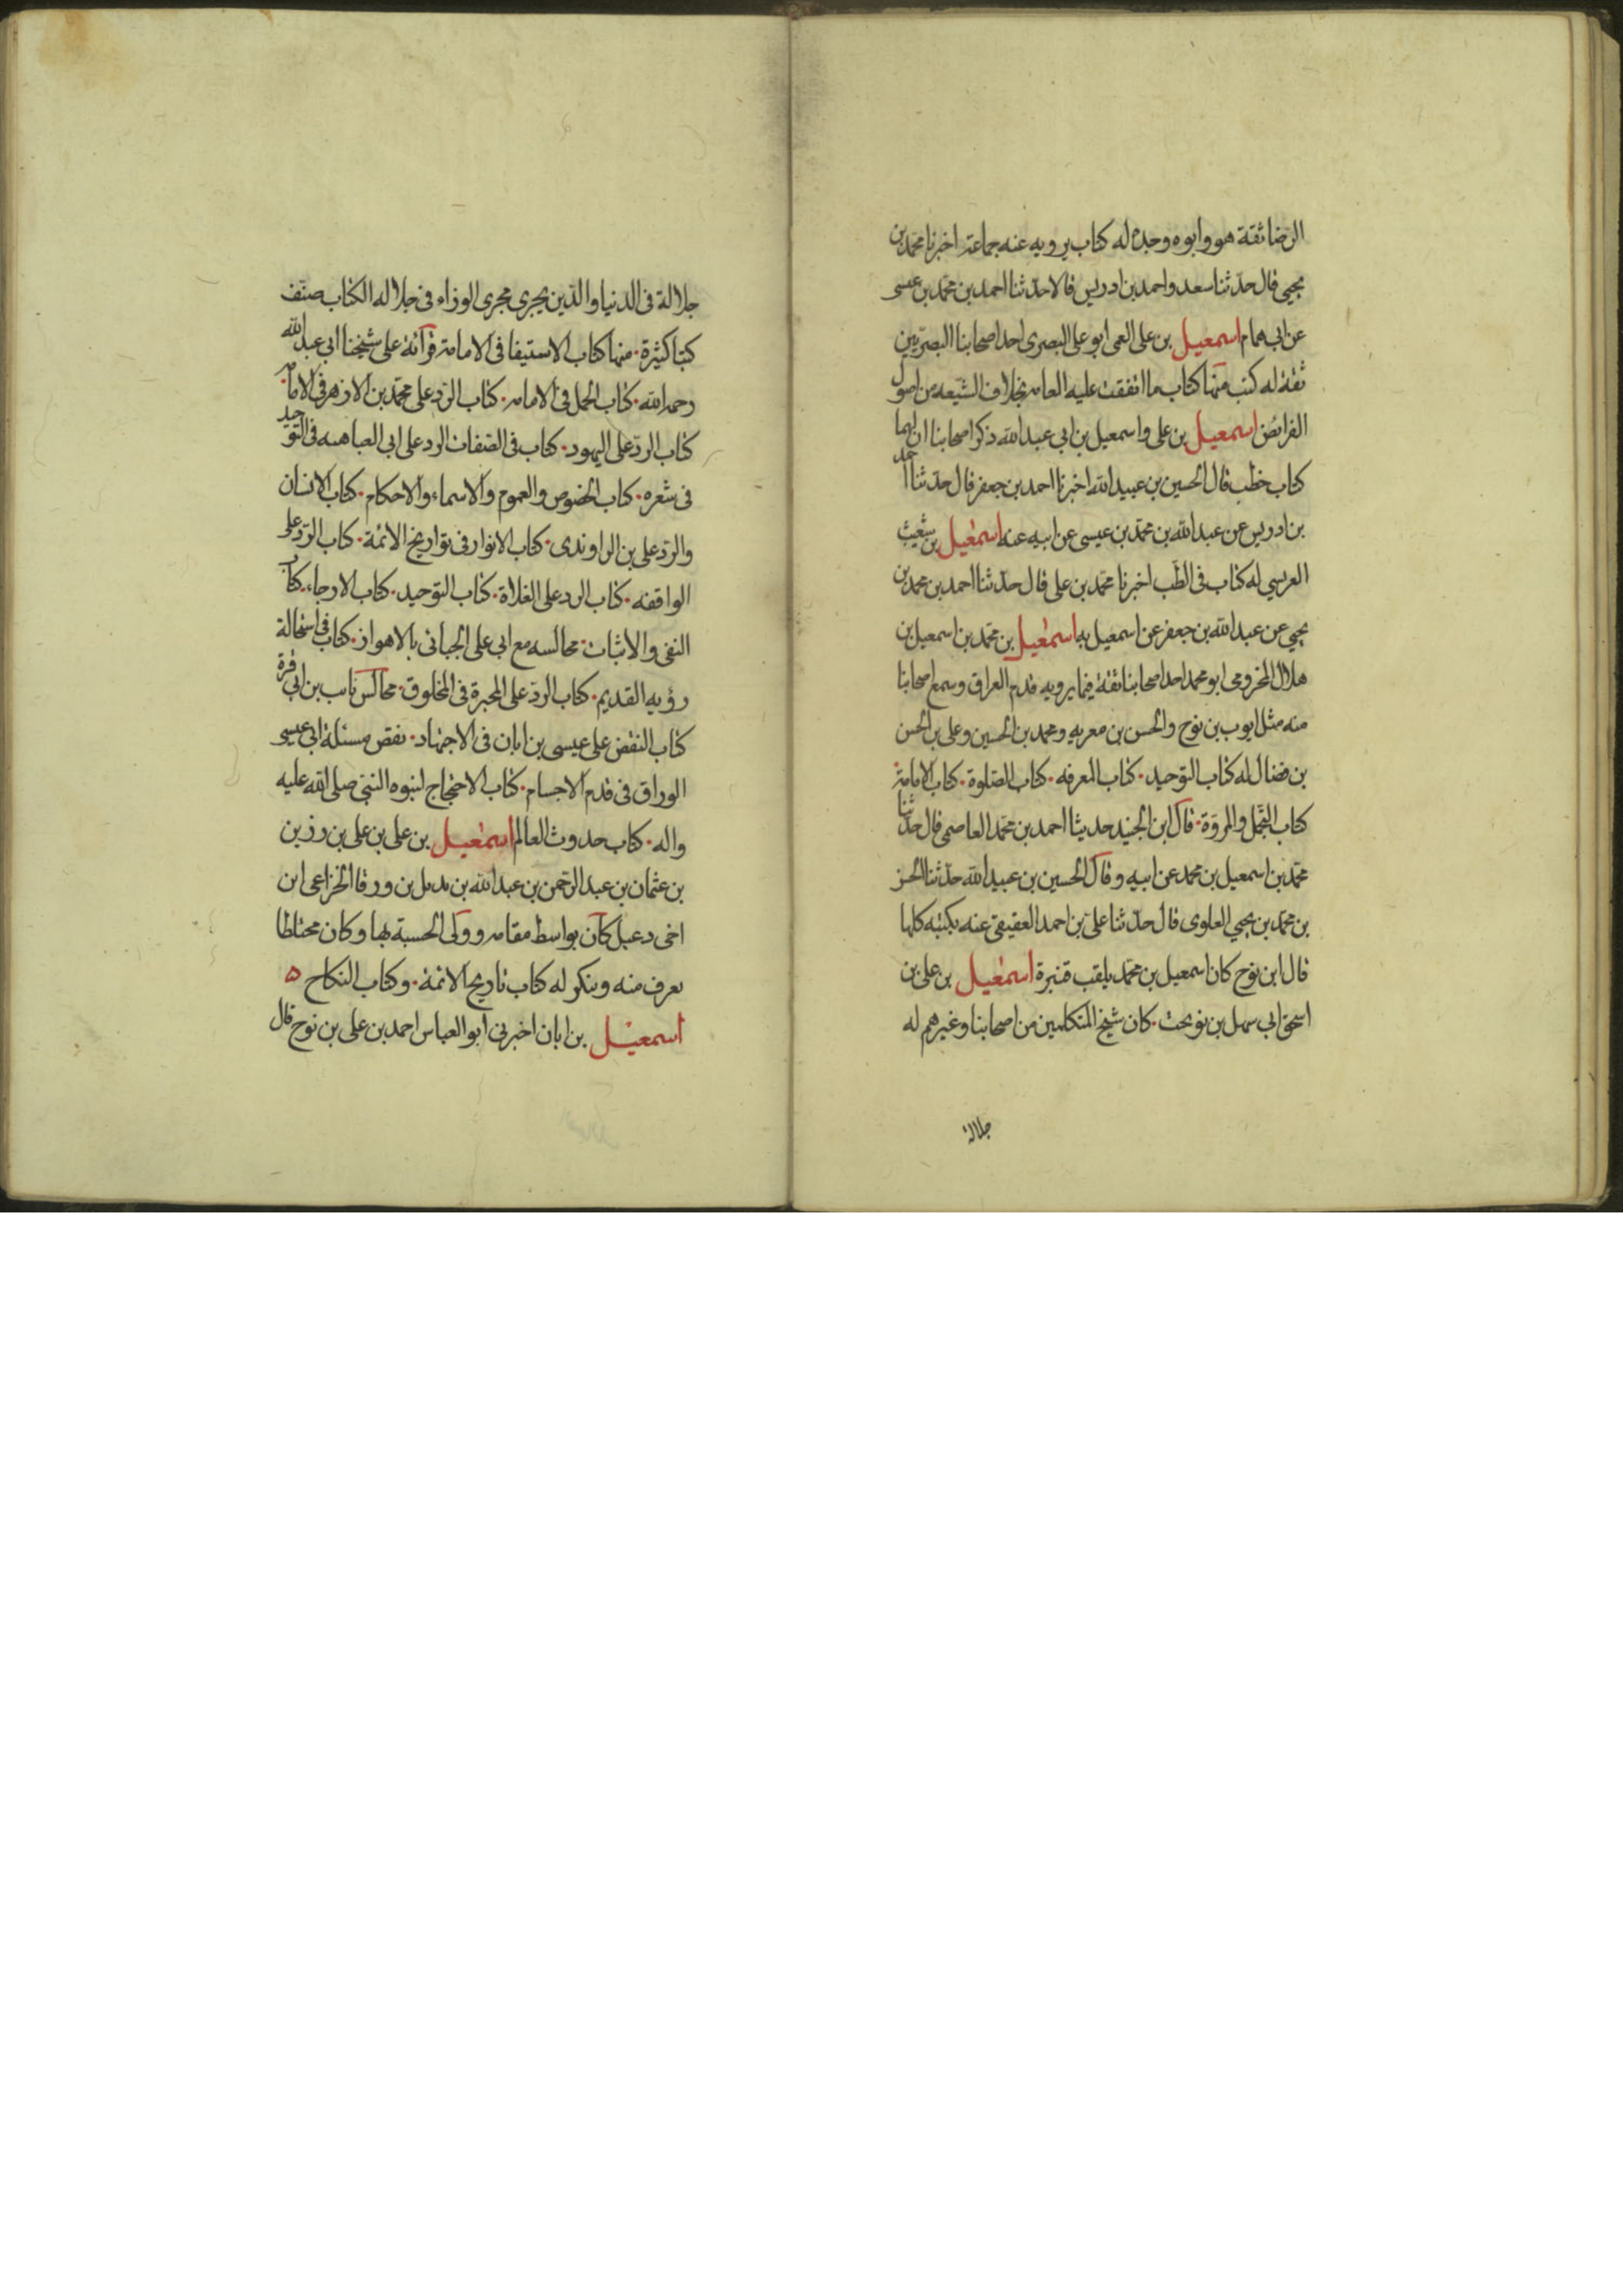 الرضا ثقة هو وابوه وجده له كتاب يرويه عنه جماعة اخبرنا محمد بن
يحيى قال حدثنا سعد واحمد بن ادريس قالا حدثنا احمد بن محمد بن عيسى
عن ابي همام اسمعيل بن على العمى ابو على البصرى احد اصحابنا البصريين
ثقة له كتب منها كتاب ما اتفقت عليه العامه بخلاف الشيعه من اصول
الفرائض اسمعيل بن على واسمعيل بن ابي عبد الله ذكر اصحابنا ان لهما
كتاب خطب قال الحسين بن عبيد الله اخبرنا احمد بن جعفر قال حدثنا احمد
بن ادريس عن عبد الله بن محمد بن عيسى عن ابيه عنه اسمعيل بن شعيب
العريسي له كتاب فى الطب اخبرنا محمد بن على قال حدثنا احمد بن محمد بن
يحيي عن عبد الله بن جعفر عن اسمعيل به اسمعيل بن محمد بن اسمعيل بن
هلال المخزومى ابو محمد احد اصحابنا ثقة فيما يرويه قدم العراق وسمع اصحابنا
منه مثل ايوب بن نوح والحسن بن معويه ومحمد بن الحسين وعلى بن الحسن
بن فضال له كتاب التوحيد. كتاب المعرفه. كتاب الصلوة. كتاب الامامة.
كتاب التجمل والمروة. قال ابن الجنيد حدثنا احمد بن محمد العاصمى قال حدثنا
محمد بن اسمعيل بن محمد عن ابيه وقال الحسين بن عبيد الله حدثنا الحسن
بن محمد بن يحيي العلوى قال حدثنا على بن احمد العقيقى عنه بكتبه كلها
قال ابن نوح كان اسمعيل بن محمد يلقب قنبرة اسمعيل بن على بن
اسحق ابي سهل بن نوبخت. كان شيخ المتكلمين من اصحابنا وغيرهم له
جلالة
جلالة فى الدنيا والدين يجرى مجرى الوزراء فى جلاله الكتاب صنف
كتبا كثيرة. منها كتاب الاستيفا فى الامامة قرأته على شيخنا ابي عبد الله
رحمه الله. كتاب الجمل فى الامامه. كتاب الرد على محمد بن الازهر فى الامامه.
كتاب الرد على اليهود. كتاب فى الصفات الرد على ابى العتاهيه فى التوحيد
فى شعره. كتاب الخصوص والعموم والاسماء والاحكام. كتاب الانسان
والرد على بن الراوندى. كتاب الانوار فى تواريخ الائمة. كتاب الرد على
الواقفه. كتاب الرد على الغلاة. كتاب التوحيد. كتاب الارجاء. كتاب
النفى والاثبات. مجالسه مع ابي على الجبائى بالاهواز. كتاب فى استحالة
رؤيه القديم. كتاب الرد على المجبرة فى المخلوق. مجالس ثابت بن ابي قرة
كتاب النقض على عيسى بن ابان فى الاجتهاد. نقض مسئلة ابى عيسى
الوراق فى قدم الاجسام. كتاب الاحتجاج لنبوه النبي صلى الله عليه
واله. كتاب حدوث العالم اسمعيل بن على بن على بن رزين
بن عثمان بن عبد الرحمن بن عبد الله بن بديل بن ورقا الخزاعى ابن
اخى دعبل كان بواسط مقامه وولى الحسبة بها وكان مختلطا
يعرف منه وينكر له كتاب تاريخ الائمة. وكتاب النكاح ه
اسمعيل بن ابان اخبرنى ابو العباس احمد بن على بن نوح قال